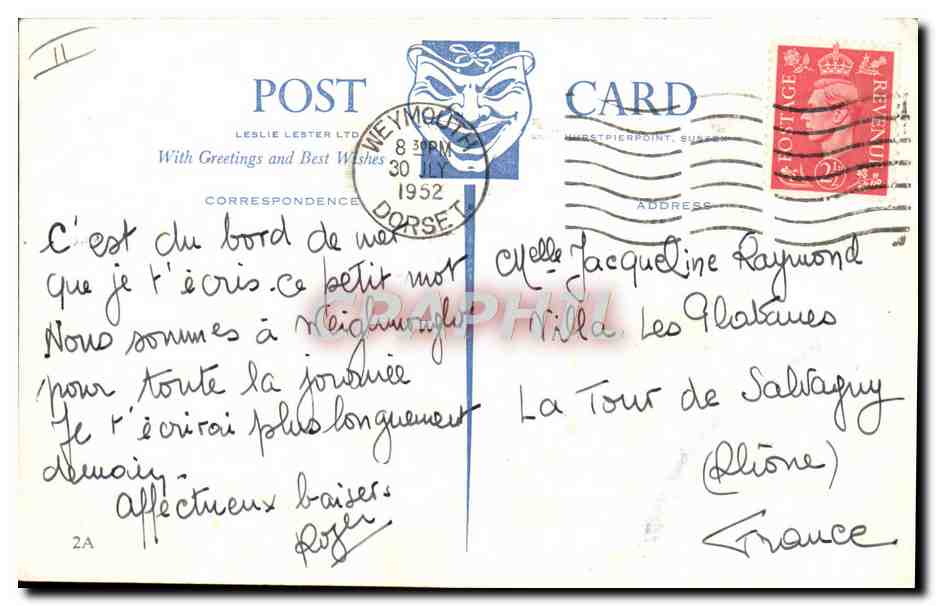 11
POST CARD
LESLIE LESTER LTD
HURSTPIERPOINT, SUSSEX
With Greetings and Best Wishes
WEYMOUTH
8 30PM
30 JLY
1952
DORSET
POSTAGE
REVENUE
2½
CORRESPONDENCE
ADDRESS
C'est du bord de mer
que je t'écris ce petit mot
Nous sommes à
pour toute la journée
Je t'écrirai plus longuement
demain.
Affectueux baisers
Roger
2A
Melle Jacqueline Raymond
Villa Les Platanes
La Tour de Salvagny
(Rhône)
France
CPAPHIL